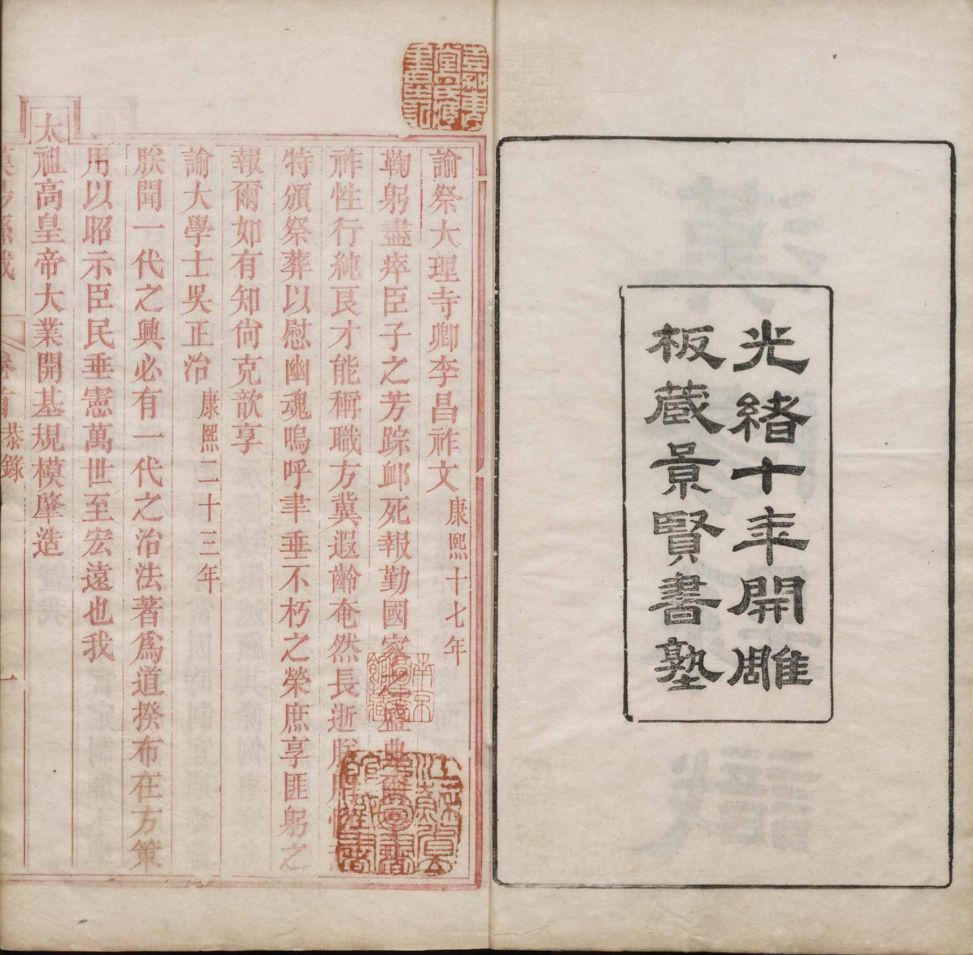 光緒十年開雕
板藏景賢書塾
諭祭大理寺卿李昌祚文康熙十七年
鞠躬盡瘁臣子之芳踪䘏死報勤國家之盛典
祚性行純良才能稱職方冀遐齡奄然長逝朕
特頒祭葬以慰幽魂嗚呼聿垂不朽之榮庶享匪躬之
報爾如有知尙克歆享
諭大學士吳正治康熙二十三年
朕聞一代之興必有一代之治法著爲道揆布在方策
用以昭示臣民垂憲萬世至宏遠也我
太祖高皇帝大業開基規模肇造
漢陽縣識
卷首恭錄
一